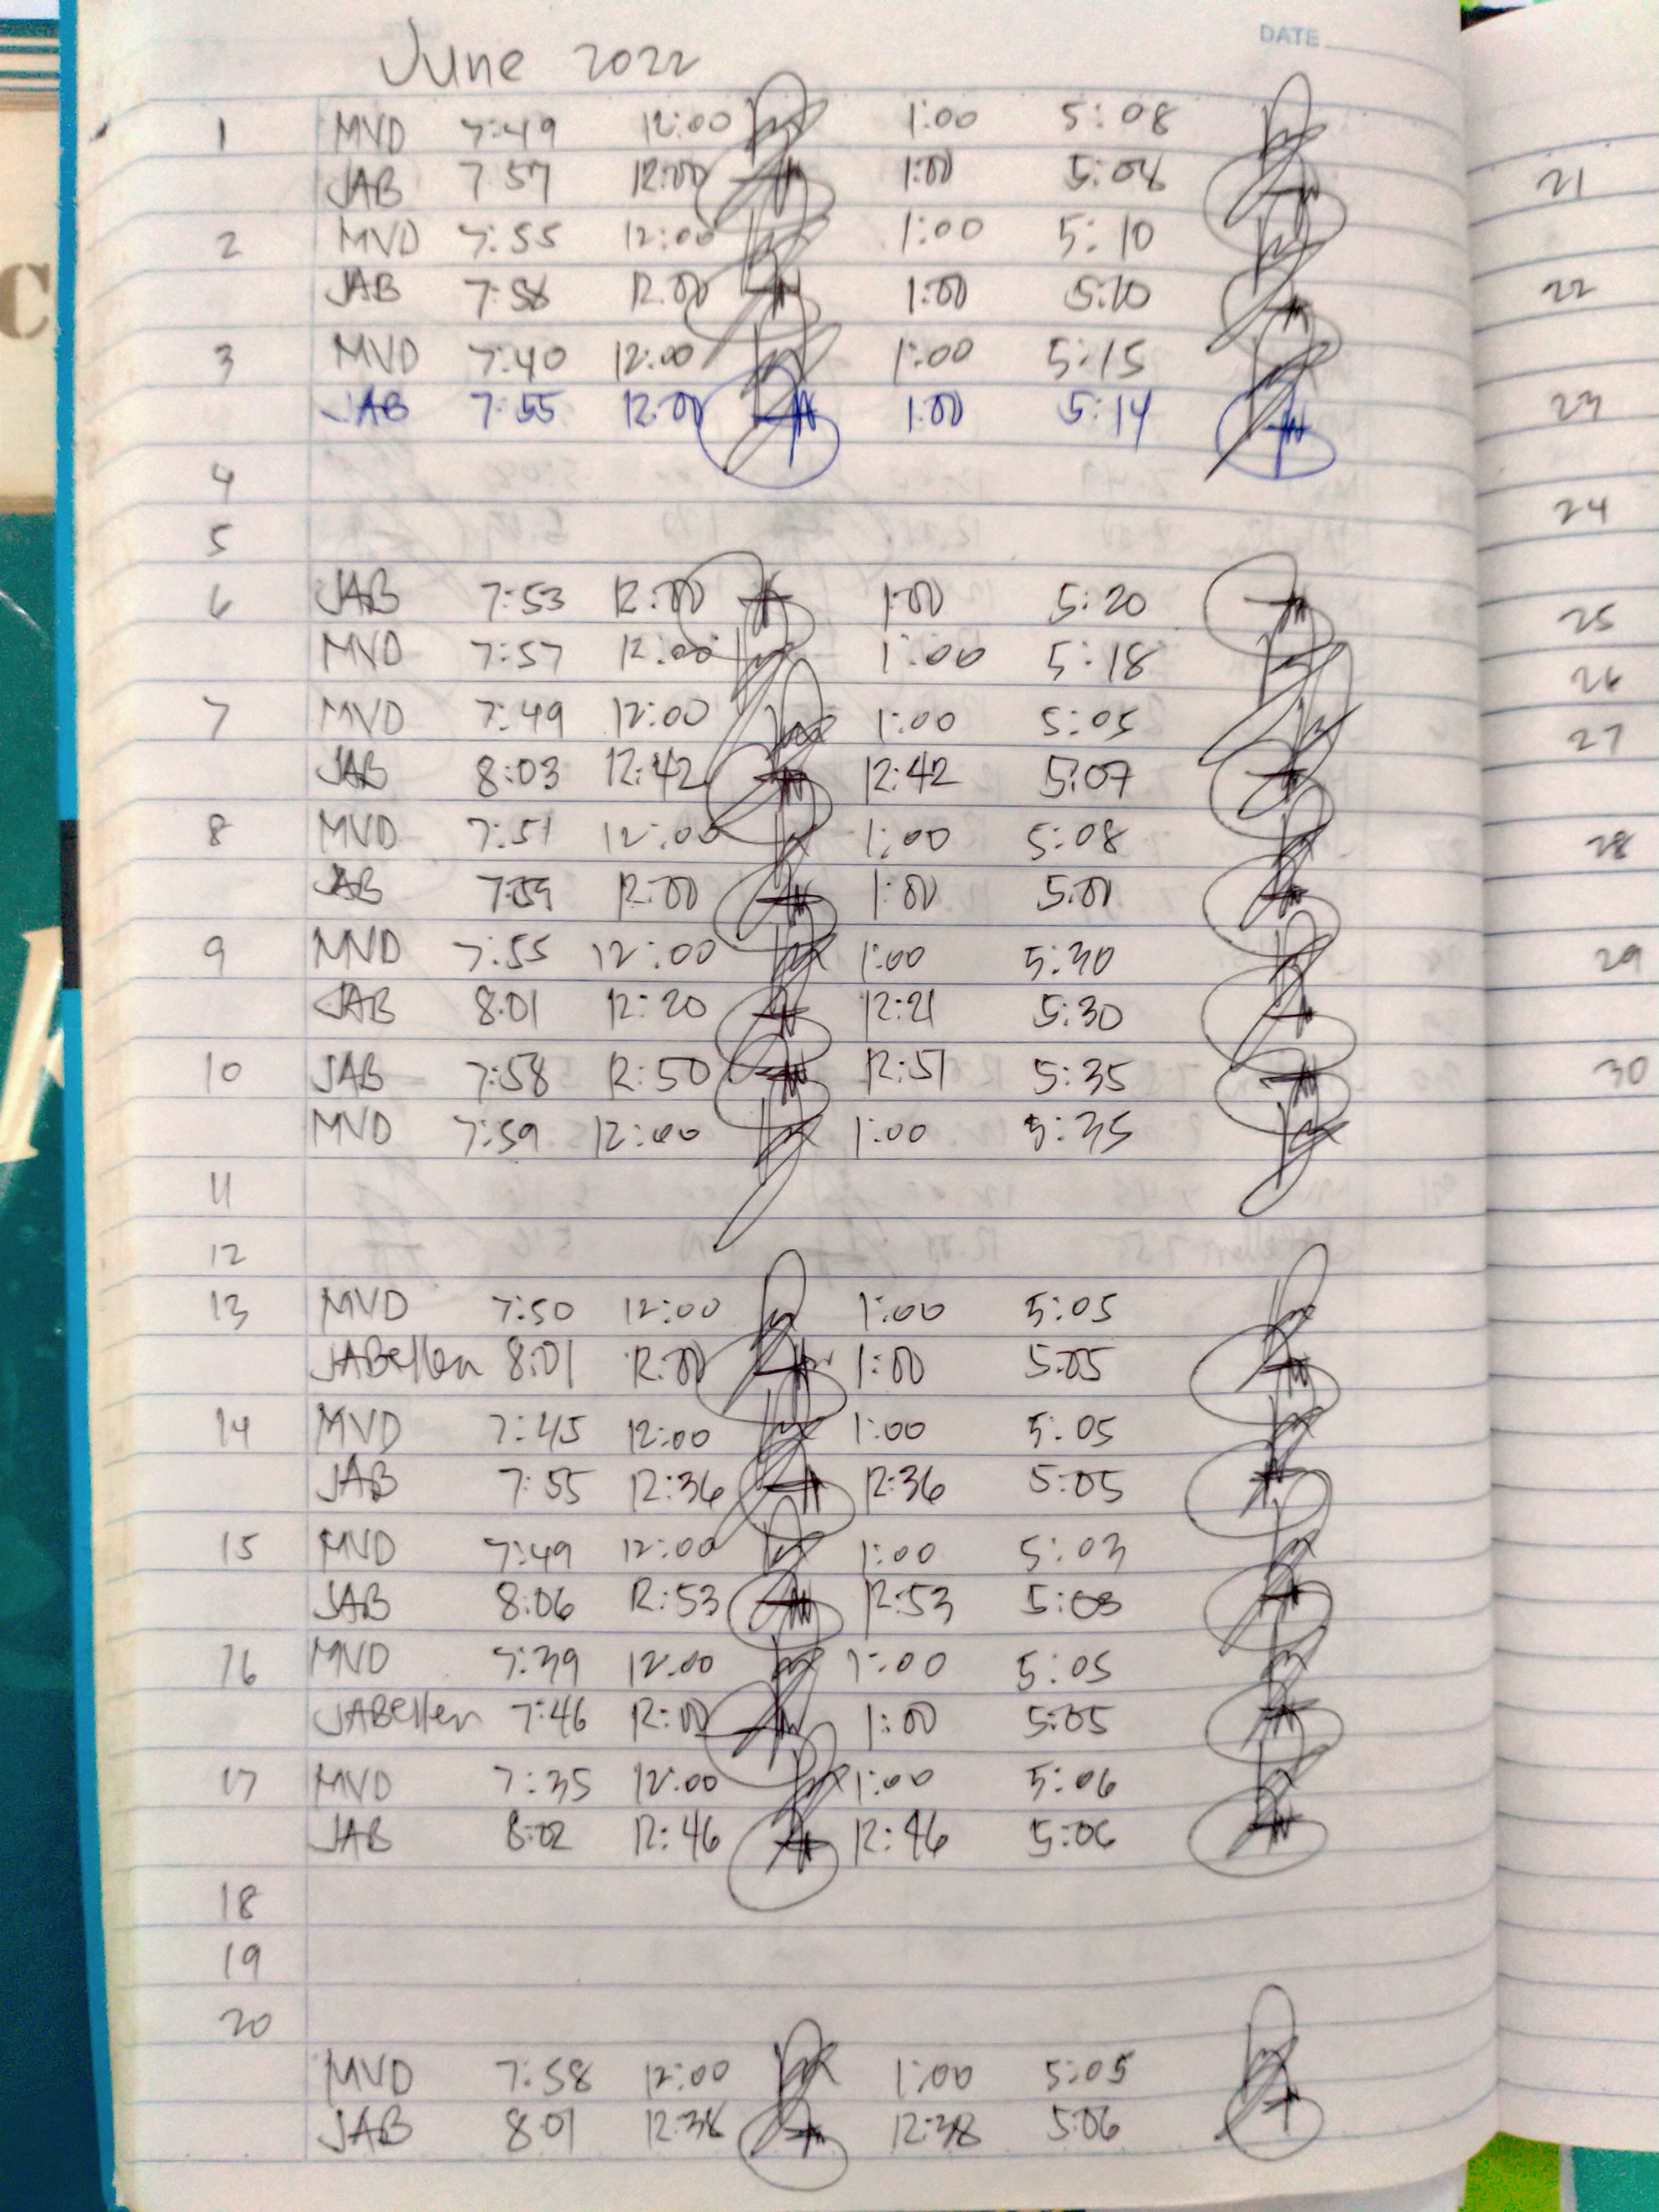 DATE
June 2022
1 MVD 7:49 12:00 1:00 5:08
JAB 7:57 12:00 1:00 5:08
2 MVD 7:55 12:00 1:00 5:10
JAB 7:58 12:00 1:00 5:10
3 MVD 7:40 12:00 1:00 5:15
JAB 7:55 12:00 1:00 5:14
4
5
6 JAB 7:53 12:00 1:00 5:20
MVD 7:57 12:00 1:00 5:18
7 MVD 7:49 12:00 1:00 5:05
JAB 8:03 12:42 12:42 5:07
8 MVD 7:51 12:00 1:00 5:08
JAB 7:59 12:00 1:00 5:00
9 MVD 7:55 12:00 1:00 5:30
JAB 8:01 12:20 12:21 5:30
10 JAB 7:58 12:50 12:51 5:35
MVD 7:59 12:00 1:00 5:35
11
12
13 MVD 7:50 12:00 1:00 5:05
JABellen 8:01 12:00 1:00 5:05
14 MVD 7:45 12:00 1:00 5:05
JAB 7:55 12:36 12:36 5:05
15 MVD 7:49 12:00 1:00 5:03
JAB 8:06 12:53 12:53 5:03
16 MVD 7:39 12:00 1:00 5:05
JABellen 7:46 12:00 1:00 5:05
17 MVD 7:35 12:00 1:00 5:06
JAB 8:02 12:46 12:46 5:06
18
19
20
MVD 7:58 12:00 1:00 5:05
JAB 8:01 12:38 12:38 5:06
21
22
23
24
25
26
27
28
29
30
C